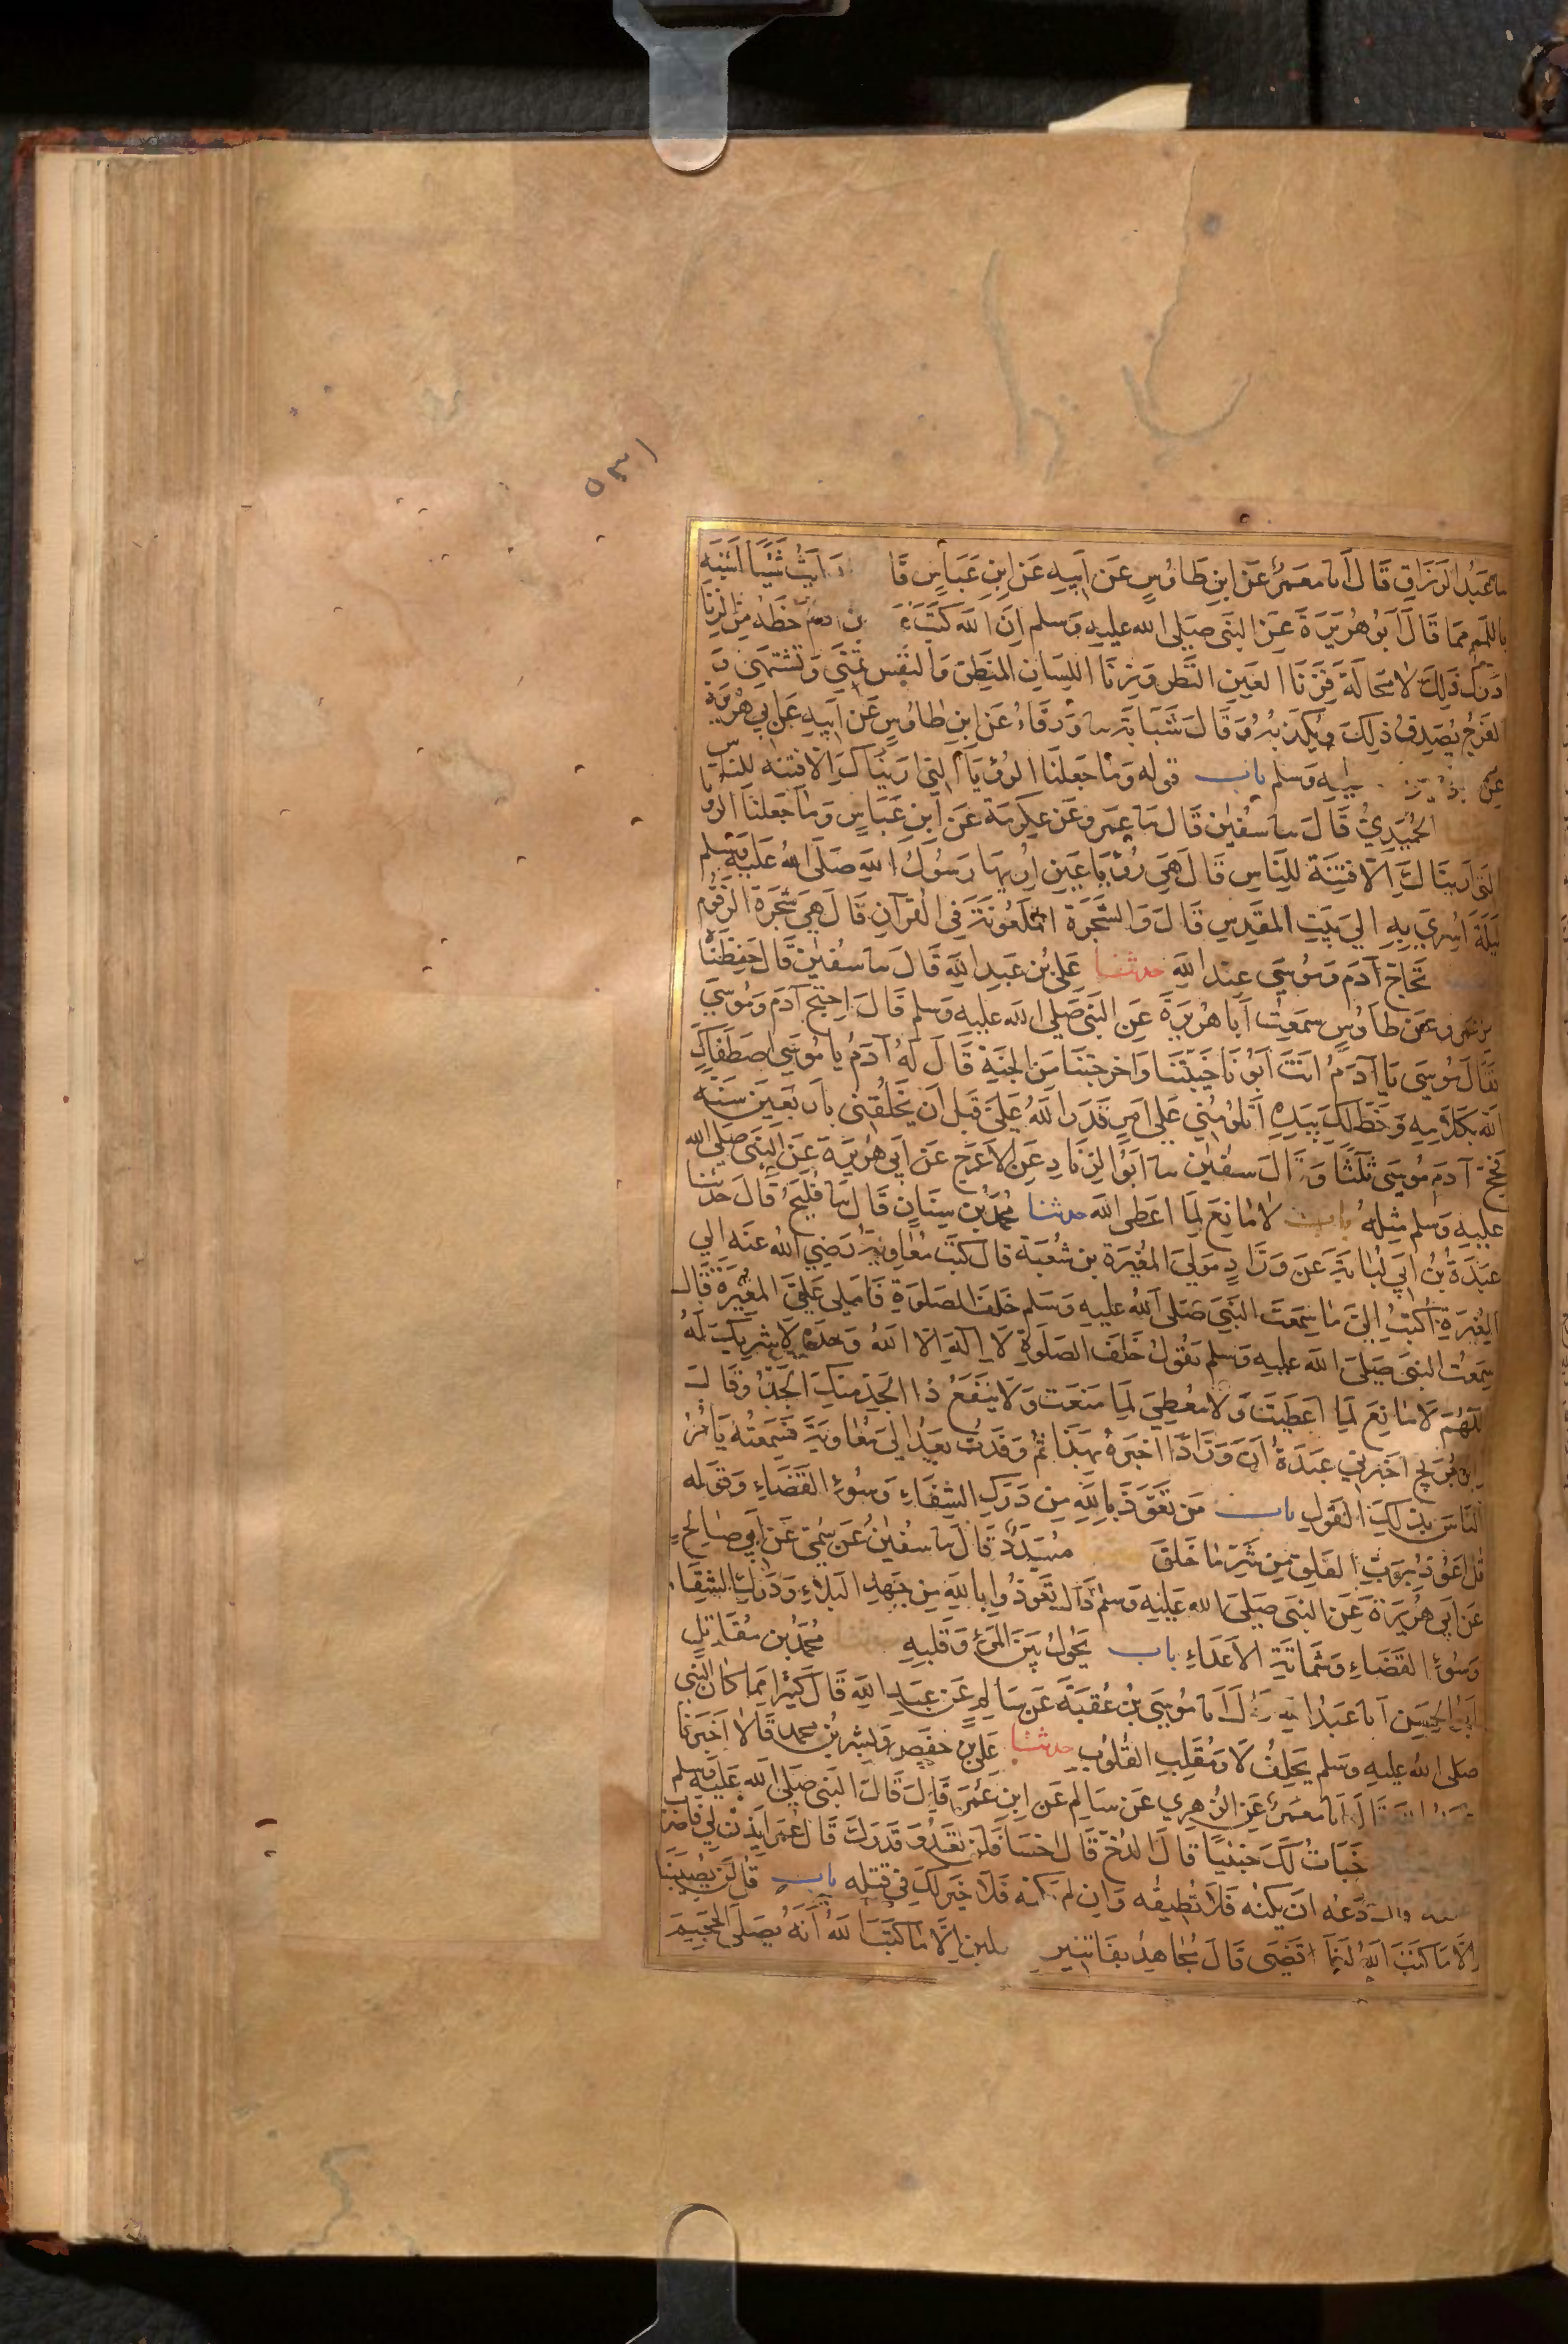 ٥٣١
ما عبد الرزاق قال انا معمر عن ابن طاوس عن ابيه عن ابن عباس قا رايت شيئا اشبه
باللمم مما قال ابو هريرة عن النبي صلى الله عليه وسلم ان الله كتب ابن ادم حظه من الزنا
ادرك ذلك لا محالة فزنا العين النظر وزنا اللسان المنطق والنفس تمنى وتشتهى و
الفرج يصدق ذلك ويكذبه وقال شبابة سا ورقاء عن ابن طاوس عن ابيه عن ابي هريرة
عن عليه وسلم باب قوله وما جعلنا الرؤيا التي اريناك الا فتنه للناس
الحميدي قال سا سفين قال سا عمرو عن عكرمة عن ابن عباس وما جعلنا الرؤيا
التي اريناك الا فتنة للناس قال هي رؤيا عين اريها رسول الله صلى الله عليه وسلم
ليلة اسري به الى بيت المقدس قال والشجرة الملعونة في القرآن قال هي شجرة الزقوم
تحاج آدم وموسى عند الله حدثنا علي بن عبد الله قال سا سفين قال حفظناه
من عمرو عن طاوس سمعت ابا هريرة عن النبي صلى الله عليه وسلم قال احتج آدم وموسى
فقال موسى يا آدم انت ابونا خيبتنا واخرجتنا من الجنة قال له آدم يا موسى اصطفاك
الله بكلامه وخط لك بيده اتلومني على امر قدر الله علي قبل ان يخلقني باربعين سنة
فحج آدم موسى ثلثا وقال سفين سا ابو الزناد عن الاعرج عن ابي هريرة عن النبي صلى الله
عليه وسلم مثله باب لا مانع لما اعطى الله حدثنا محمد بن سنان قال سا فليح قال حدثنا
عبدة بن ابي لبابة عن وراد مولى المغيرة بن شعبة قال كتب معاوية رضي الله عنه الى
المغيرة اكتب الي ما سمعت النبي صلى الله عليه وسلم خلف الصلوة فاملى علي المغيرة قال
سمعت النبي صلى الله عليه وسلم يقول خلف الصلوة لا اله الا الله وحده لا شريك له
اللهم لا مانع لما اعطيت ولا معطي لما منعت ولا ينفع ذا الجد منك الجد وقال
ابن جريج اخبرني عبدة ان ورادا اخبره بهذا ثم وفدت بعد الى معاوية فسمعته يامر
الناس بذلك القول باب من تعوذ بالله من درك الشقاء وسوء القضاء وقوله
قل اعوذ برب الفلق من شر ما خلق مسدد قال سا سفين عن سمي عن ابي صالح
عن ابي هريرة عن النبي صلى الله عليه وسلم قال تعوذوا بالله من جهد البلاء ودرك الشقاء
وسوء القضاء وشماتة الاعداء باب يحول بين المرء وقلبه حدثنا محمد بن مقاتل
ابو الحسن انا عبد الله قال انا موسى بن عقبة عن سالم عن عبد الله قال كثيرا مما كان النبي
صلى الله عليه وسلم يحلف لا ومقلب القلوب حدثنا علي بن حفص وبشر بن محمد قالا اخبرنا
عبد الله قال انا معمر عن الزهري عن سالم عن ابن عمر قال قال النبي صلى الله عليه وسلم
خبات لك خبيئا قال الدخ قال اخسا فلن تعدو قدرك قال عمر ايذن لي فاضرب
دعه ان يكنه فلا تطيقه وان لم يكنه فلا خير لك في قتله باب قل لن يصيبنا
الا ما كتب الله لنا قضى قال مجاهد بفاتنين الا ما كتب الله انه يصلى الجحيم